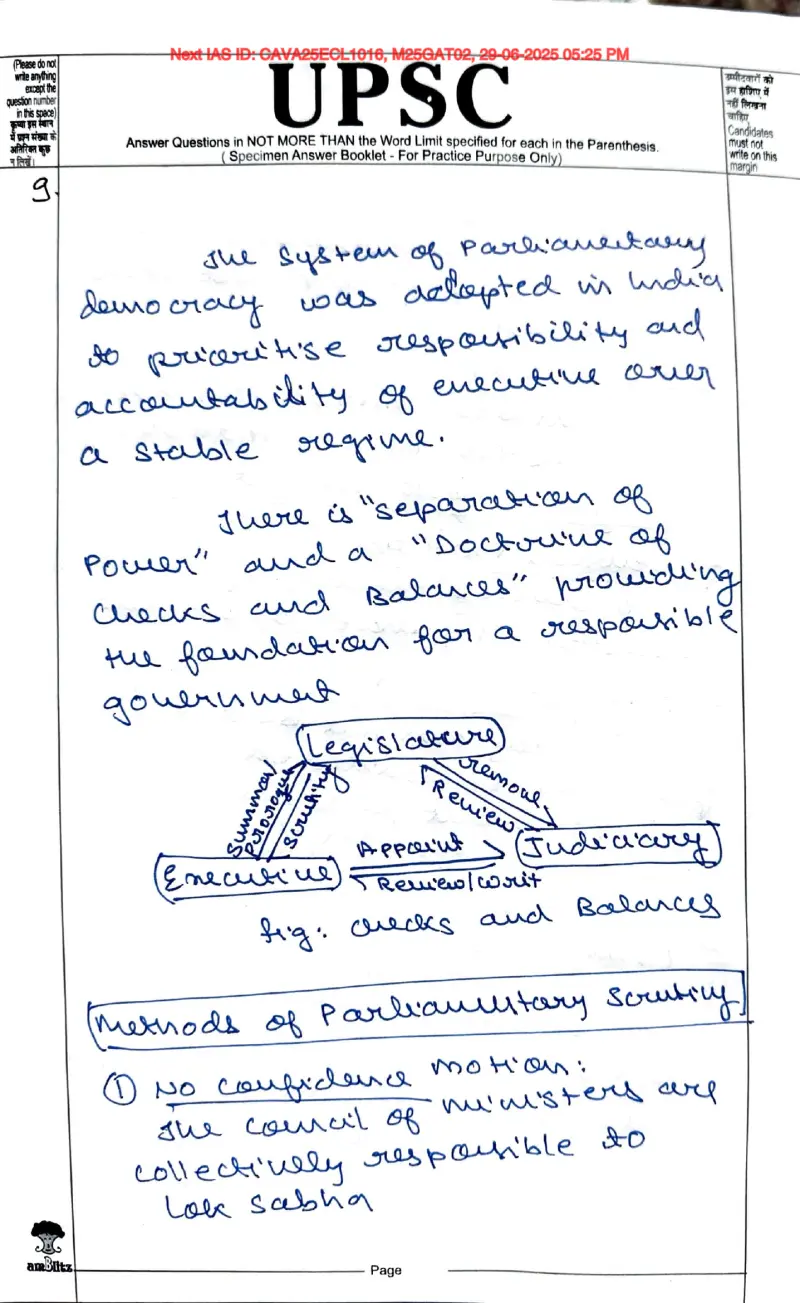 Next IAS ID: CAVA25ECL1016, M25GAT02, 29-06-2025 05:25 PM
(Please do not
write anything
except the
question number
in this space)
कृपया इस स्थान
में प्रश्न संख्या के
अतिरिक्त कुछ
न लिखें)
UPSC
Answer Questions in NOT MORE THAN the Word Limit specified for each in the Parenthesis.
( Specimen Answer Booklet - For Practice Purpose Only)
उम्मीदवारों को
इस हाशिए में
नहीं लिखना
चाहिए
Candidates
must not
write on this
margin
9.
The System of Parliamentary
democracy was adopted in India
to prioritise responsibility and
accountability of executive over
a stable regime.
There is "separation of
Power" and a "Doctrine of
Checks and Balances" providing
the foundation for a responsible
government
Legislature
Summon/
prorogue
Scrutiny
remove
Review
Executive
Appoint
Review/writ
Judiciary
fig: checks and Balances
Methods of Parliamentary Scrutiny
① No confidence motion:
The council of ministers are
collectively responsible to
Lok Sabha
amBlitz
Page